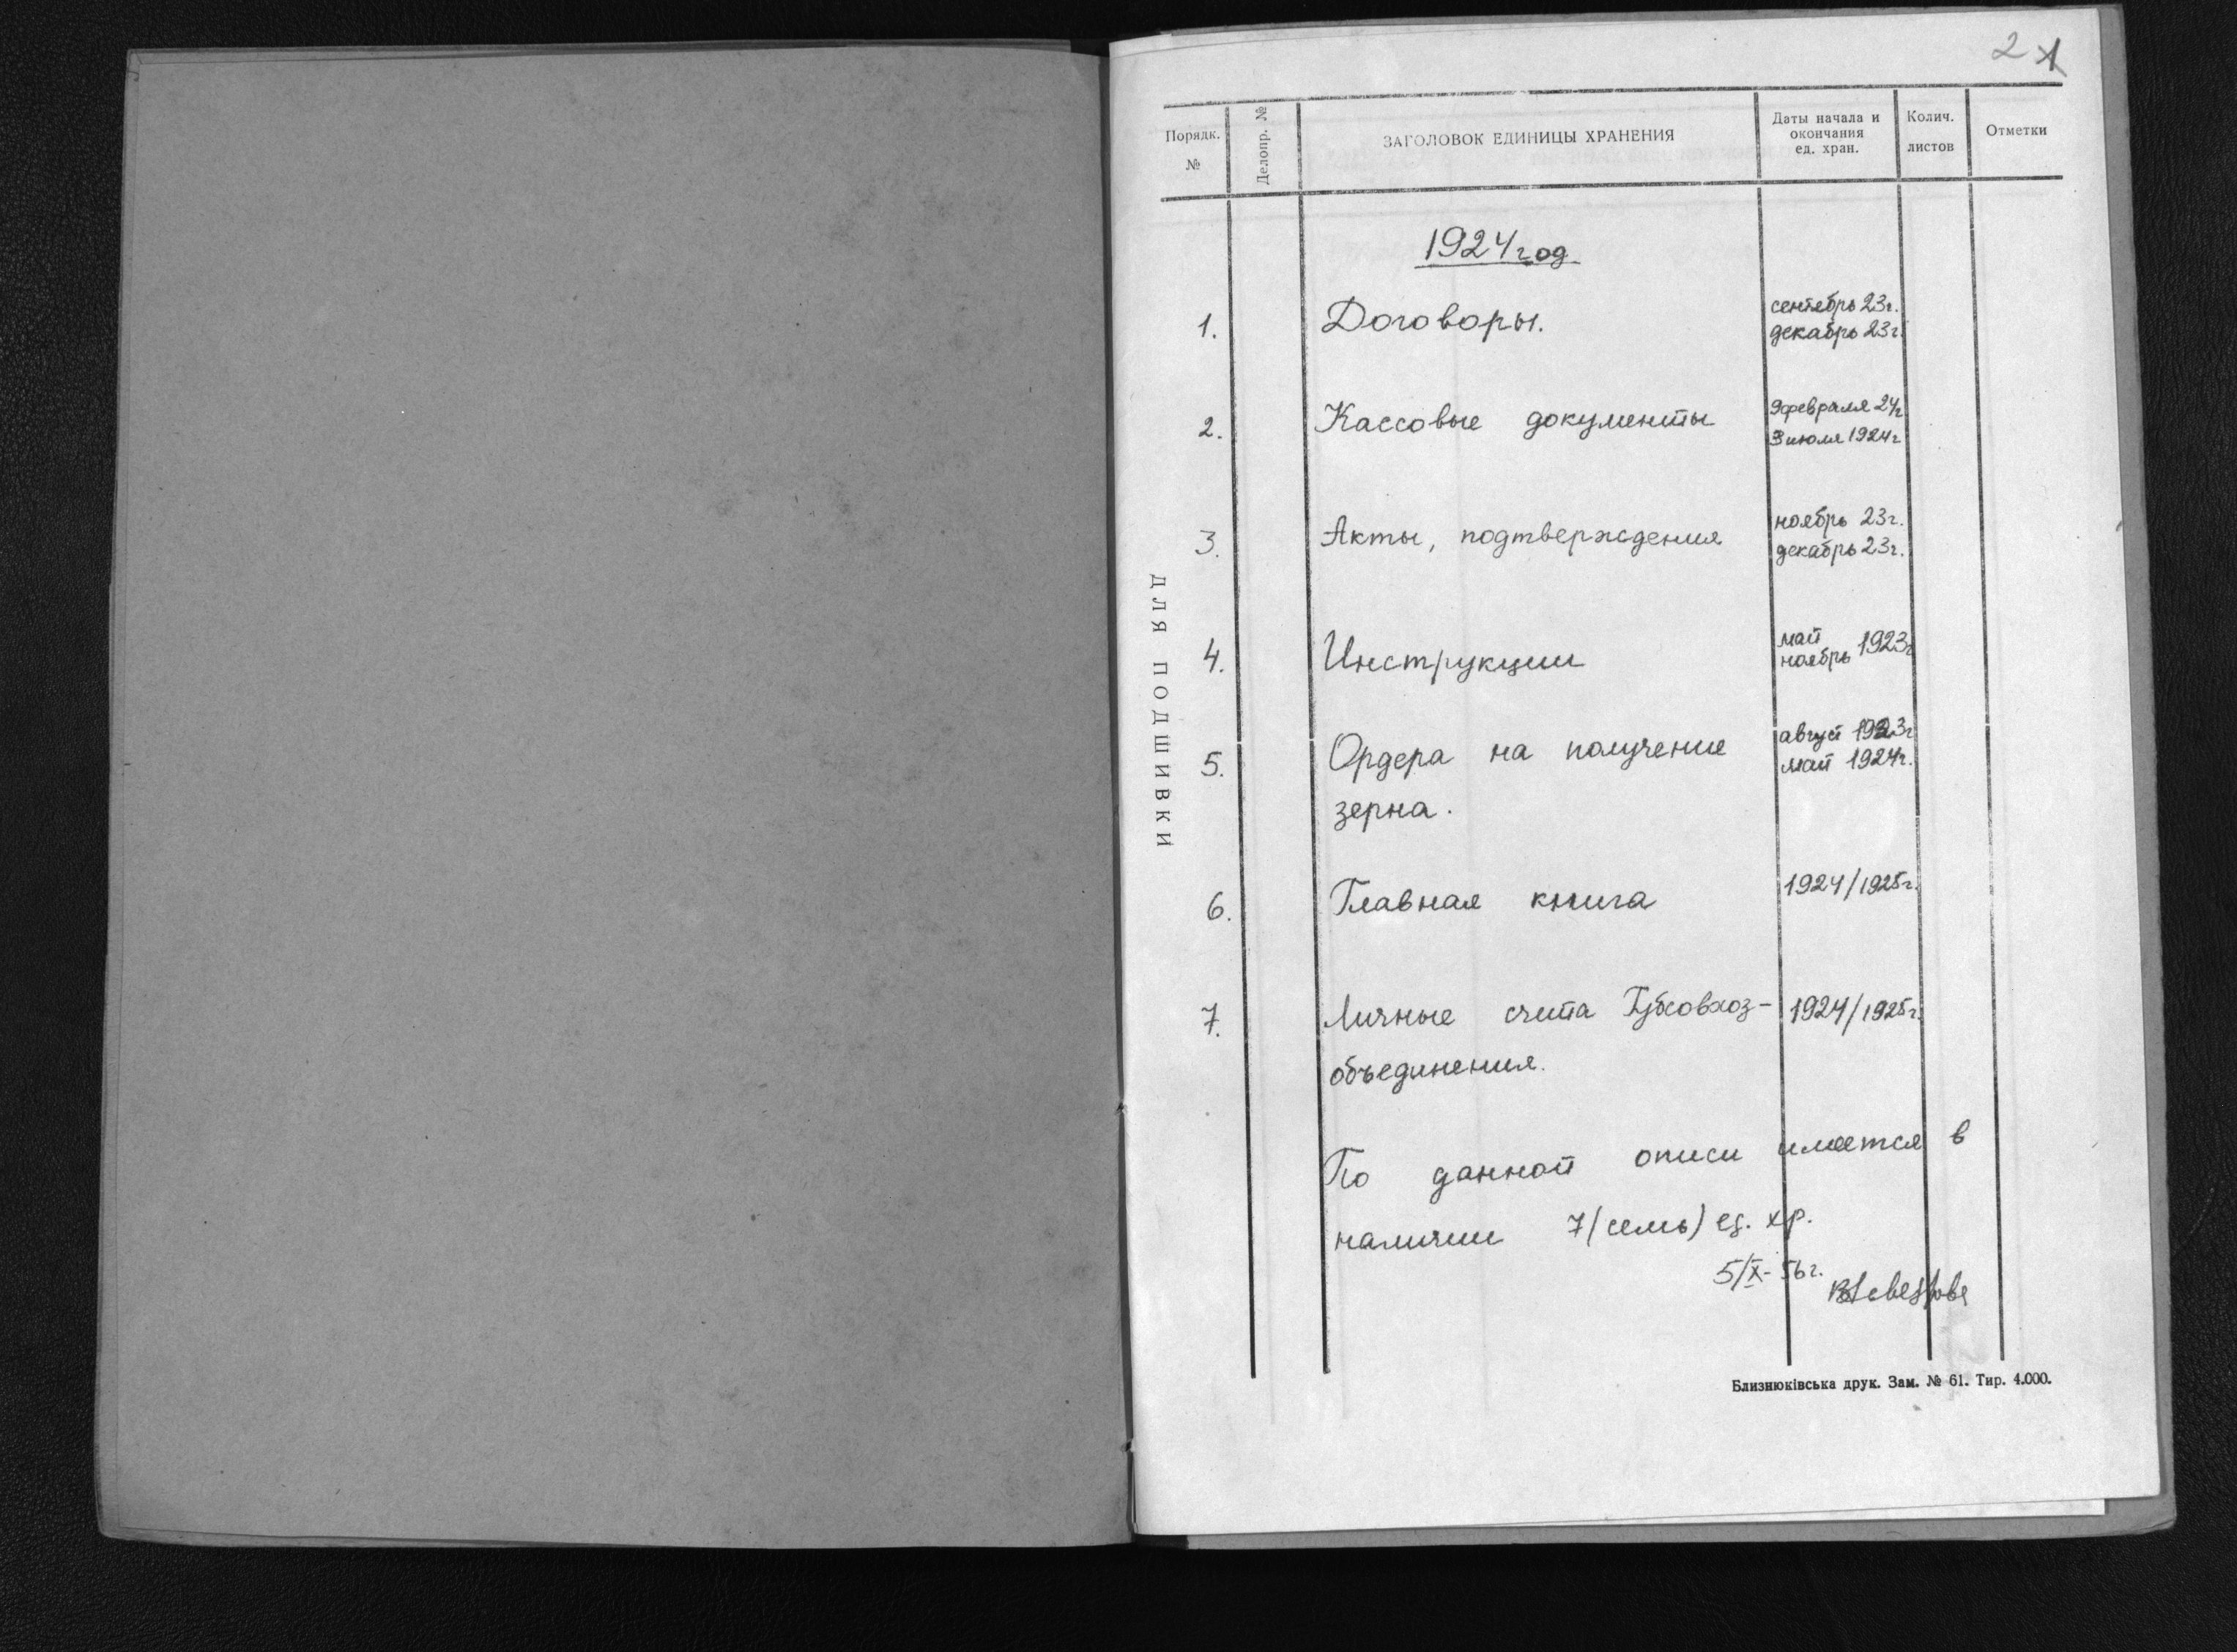 2 1
Порядк. №
Делопр. №
ЗАГОЛОВОК ЕДИНИЦЫ ХРАНЕНИЯ
Даты начала и окончания ед. хран.
Колич. листов
Отметки
ДЛЯ ПОДШИВКИ
1924 год
1. Договоры. сентябрь 23г.
декабрь 23г.
2. Кассовые документы 9 февраля 24г
3 июля 1924г
3. Акты, подтверждения ноябрь 23г.
декабрь 23г.
4. Инструкции май
ноябрь 1923г
5. Ордера на получение август 1923г
май 1924г.
зерна.
6. Главная книга 1924/1925г.
7. Личные счета Губсовхоз- 1924/1925г.
объединения.
По данной описи имеется в
наличии 7 (семь) ед. хр.
5/X-56г.
Близнюківська друк. Зам. № 61. Тир. 4.000.